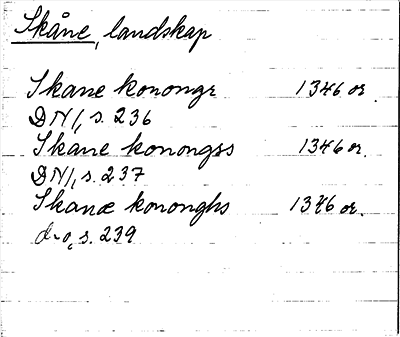 Skåne, landskap
Skane konongr 1346 or.
DN 1, s. 236
Skane konongss 1346 or.
DN 1, s. 237
Skanæ kononghs 1346 or.
d:o, s. 239